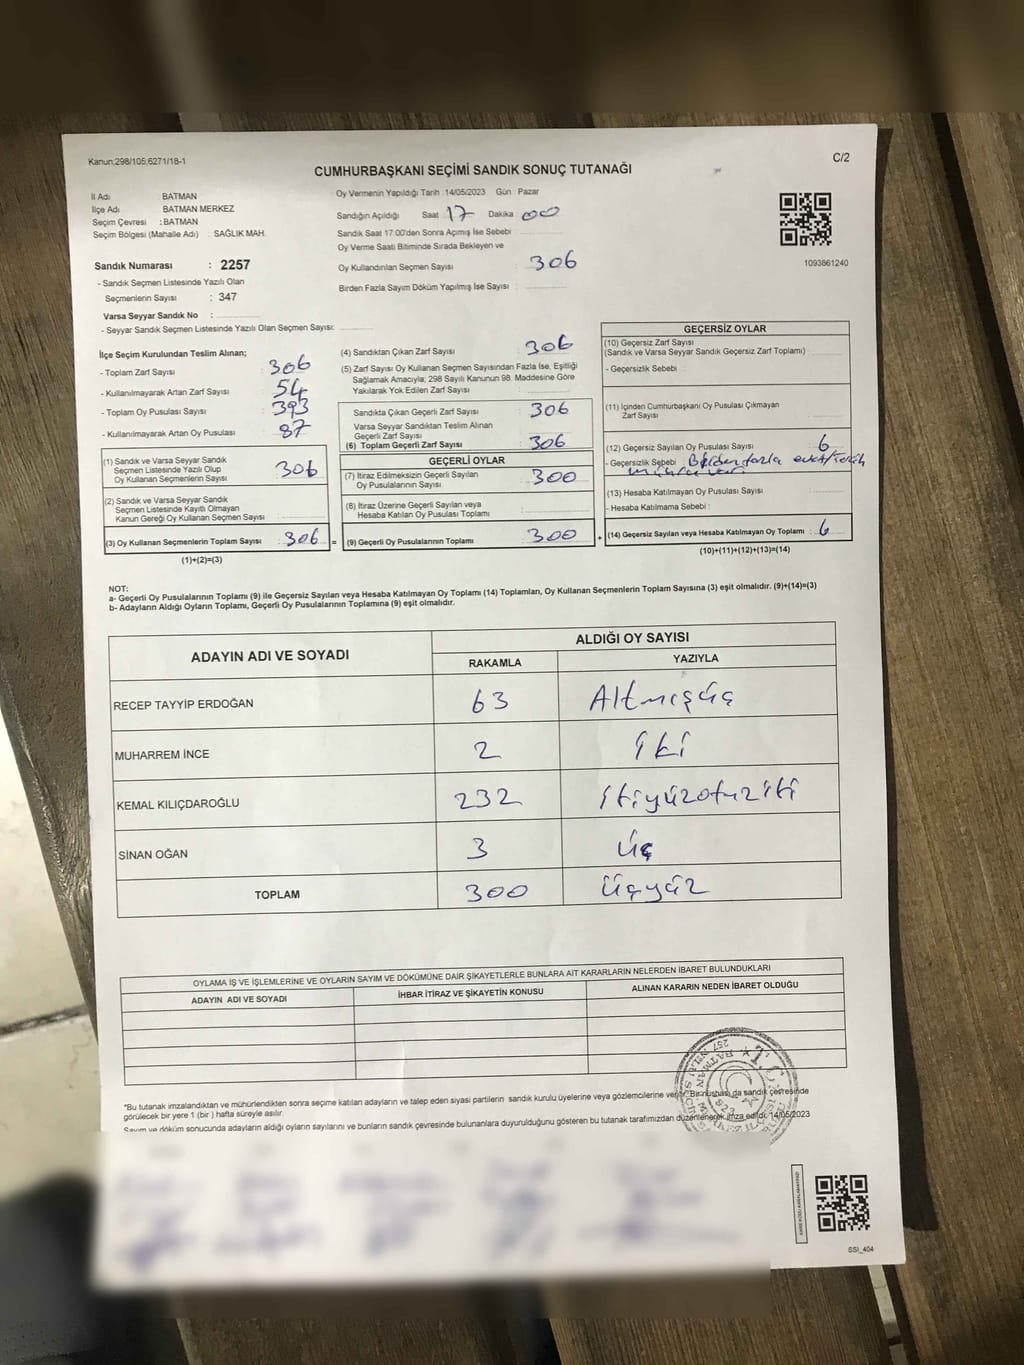 Kanun;298/105;6271/18-1
C/2
CUMHURBAŞKANI SEÇİMİ SANDIK SONUÇ TUTANAĞI
İl Adı BATMAN
İlçe Adı BATMAN MERKEZ
Seçim Çevresi : BATMAN
Seçim Bölgesi (Mahalle Adı) : SAĞLIK MAH.
Sandık Numarası : 2257
- Sandık Seçmen Listesinde Yazılı Olan
Seçmenlerin Sayısı : 347
Varsa Seyyar Sandık No :
- Seyyar Sandık Seçmen Listesinde Yazılı Olan Seçmen Sayısı:
Oy Vermenin Yapıldığı Tarih : 14/05/2023 Gün : Pazar
Sandığın Açıldığı Saat 17 Dakika 00
Sandık Saat 17:00'den Sonra Açımış İse Sebebi
Oy Verme Saati Bitiminde Sırada Bekleyen ve
Oy Kullandırılan Seçmen Sayısı : 306
Birden Fazla Sayım Döküm Yapılmış İse Sayısı :
1093861240
İlçe Seçim Kurulundan Teslim Alınan;
- Toplam Zarf Sayısı : 306
- Kullanılmayarak Artan Zarf Sayısı : 54
- Toplam Oy Pusulası Sayısı : 393
- Kullanılmayarak Artan Oy Pusulası : 87
(1) Sandık ve Varsa Seyyar Sandık
Seçmen Listesinde Yazılı Olup
Oy Kullanan Seçmenlerin Sayısı : 306
(2) Sandık ve Varsa Seyyar Sandık
Seçmen Listesinde Kayıtlı Olmayan
Kanun Gereği Oy Kullanan Seçmen Sayısı :
(3) Oy Kullanan Seçmenlerin Toplam Sayısı : 306 =
(1)+(2)=(3)
(4) Sandıktan Çıkan Zarf Sayısı : 306
(5) Zarf Sayısı Oy Kullanan Seçmen Sayısından Fazla İse, Eşitliği
Sağlamak Amacıyla; 298 Sayılı Kanunun 98. Maddesine Göre
Yakılarak Yok Edilen Zarf Sayısı :
Sandıkta Çıkan Geçerli Zarf Sayısı : 306
Varsa Seyyar Sandıktan Teslim Alınan
Geçerli Zarf Sayısı :
(6) Toplam Geçerli Zarf Sayısı : 306
GEÇERLİ OYLAR
(7) İtiraz Edilmeksizin Geçerli Sayılan
Oy Pusulalarının Sayısı : 300
(8) İtiraz Üzerine Geçerli Sayılan veya
Hesaba Katılan Oy Pusulası Toplamı :
(9) Geçerli Oy Pusulalarının Toplamı : 300 +
GEÇERSİZ OYLAR
(10) Geçersiz Zarf Sayısı
(Sandık ve Varsa Seyyar Sandık Geçersiz Zarf Toplamı) :
- Geçersizlik Sebebi :
(11) İçinden Cumhurbaşkanı Oy Pusulası Çıkmayan
Zarf Sayısı :
(12) Geçersiz Sayılan Oy Pusulası Sayısı : 6
- Geçersizlik Sebebi : Birden fazla evet/tercih
(13) Hesaba Katılmayan Oy Pusulası Sayısı :
- Hesaba Katılmama Sebebi :
(14) Geçersiz Sayılan veya Hesaba Katılmayan Oy Toplamı : 6
(10)+(11)+(12)+(13)=(14)
NOT:
a- Geçerli Oy Pusulalarının Toplamı (9) ile Geçersiz Sayılan veya Hesaba Katılmayan Oy Toplamı (14) Toplamları, Oy Kullanan Seçmenlerin Toplam Sayısına (3) eşit olmalıdır. (9)+(14)=(3)
b- Adayların Aldığı Oyların Toplamı, Geçerli Oy Pusulalarının Toplamına (9) eşit olmalıdır.
ADAYIN ADI VE SOYADI ALDIĞI OY SAYISI
RAKAMLA YAZIYLA
RECEP TAYYİP ERDOĞAN 63 Altmışüç
MUHARREM İNCE 2 iki
KEMAL KILIÇDAROĞLU 232 ikiyüzotuziki
SİNAN OĞAN 3 üç
TOPLAM 300 üçyüz
OYLAMA İŞ VE İŞLEMLERİNE VE OYLARIN SAYIM VE DÖKÜMÜNE DAİR ŞİKAYETLERLE BUNLARA AİT KARARLARIN NELERDEN İBARET BULUNDUKLARI
ADAYIN ADI VE SOYADI İHBAR İTİRAZ VE ŞİKAYETİN KONUSU ALINAN KARARIN NEDEN İBARET OLDUĞU
*Bu tutanak imzalandıktan ve mühürlendikten sonra seçime katılan adayların ve talep eden siyasi partilerin sandık kurulu üyelerine veya gözlemcilerine verilir. Bir nüshası da sandık çevresinde
görülecek bir yere 1 (bir ) hafta süreyle asılır.
Sayım ve döküm sonucunda adayların aldığı oyların sayılarını ve bunların sandık çevresinde bulunanlara duyurulduğunu gösteren bu tutanak tarafımızdan düzenlenerek imza edildi. 14/05/2023
SSI_404